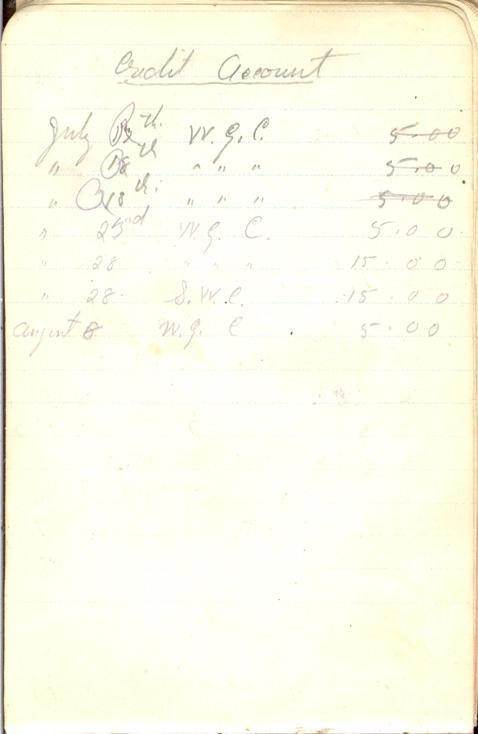 Credit Account
July 13th. W. G. C. 5.00
" 18th " " " 5.00
" 18th. " " " 5.00
" 25nd W G. C. 5.00
" 28 " " " 15.00
" 28. S. W. C. 15.00
August 8 W. G. C. 5.00